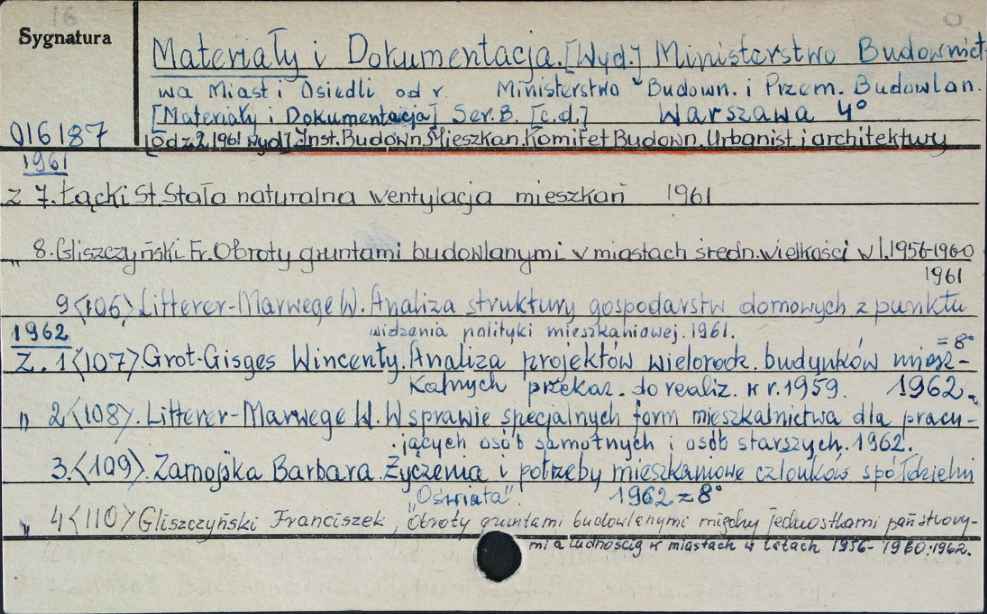 16
Sygnatura
Materiały i Dokumentacja. [Wyd.] Ministerstwo Budownict-
wa Miast i Osiedli od r. Ministerstwo Budown. i Przem. Budowlan.
[Materiały i Dokumentacja] Ser. B. [c.d.] Warszawa 4°
016187
[od z. 2, 1961 wyd.] Inst. Budown. Mieszkan. Komitet Budown. Urbanist i architektury
1961
z 7. Łącki St. Stała naturalna wentylacja mieszkań 1961
„ 8. Gliszczyński Fr. Obroty gruntami budowlanymi w miastach średn. wielkości w l. 1956-1960
1961
9 <106> Litterer-Marwege W. Analiza struktury gospodarstw domowych z punktu
widzenia polityki mieszkaniowej. 1961.
1962
= 8°
Z. 1 <107> Grot-Gisges Wincenty. Analiza projektów wielorodz. budynków miesz-
kalnych przekaz. do realiz. w r. 1959. 1962.
„ 2 <108>. Litterer-Marwege W. W sprawie specjalnych form mieszkalnictwa dla pracu-
jących osób samotnych i osób starszych. 1962.
3. <109>. Zamojska Barbara. Życzenia i potrzeby mieszkaniowe członków spółdzielni
"Oświata". 1962 = 8°
„ 4 <110> Gliszczyński Franciszek, Obroty gruntami budowlanymi między jednostkami państwowy-
mi a ludnością w miastach w latach 1956-1960. 1962.